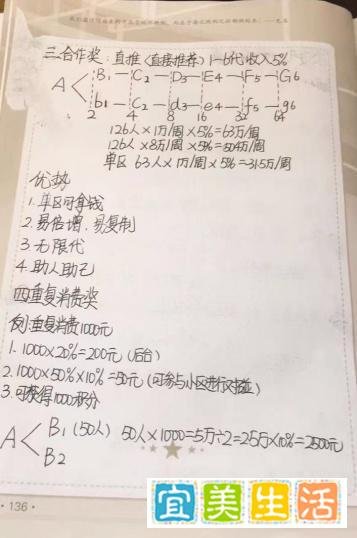 三.合作奖：直推（直接推荐）1-6代收入5%
A< B1—C2—D3—E4—F5—G6
b1—C2—d3—e4—f5—g6
2 4 8 16 32 64
126人×1万/周×5%=63万/周
126人×8万/周×5%=504万/周
单区 63人×1万/周×5%=31.5万/周
优势
1.单区可拿钱
2.易倍增、易复制
3.无限代
4.助人助己
四.重复消费奖
例:重复消费1000元
1.1000×20%=200元（后台）
2.1000×50%×10%=50元（可参与小区进行对碰）
3.可获得1000积分
A< B1（50人） 50人×1000=5万÷2=2.5万×10%=2500元
B2
·136·
宜美生活